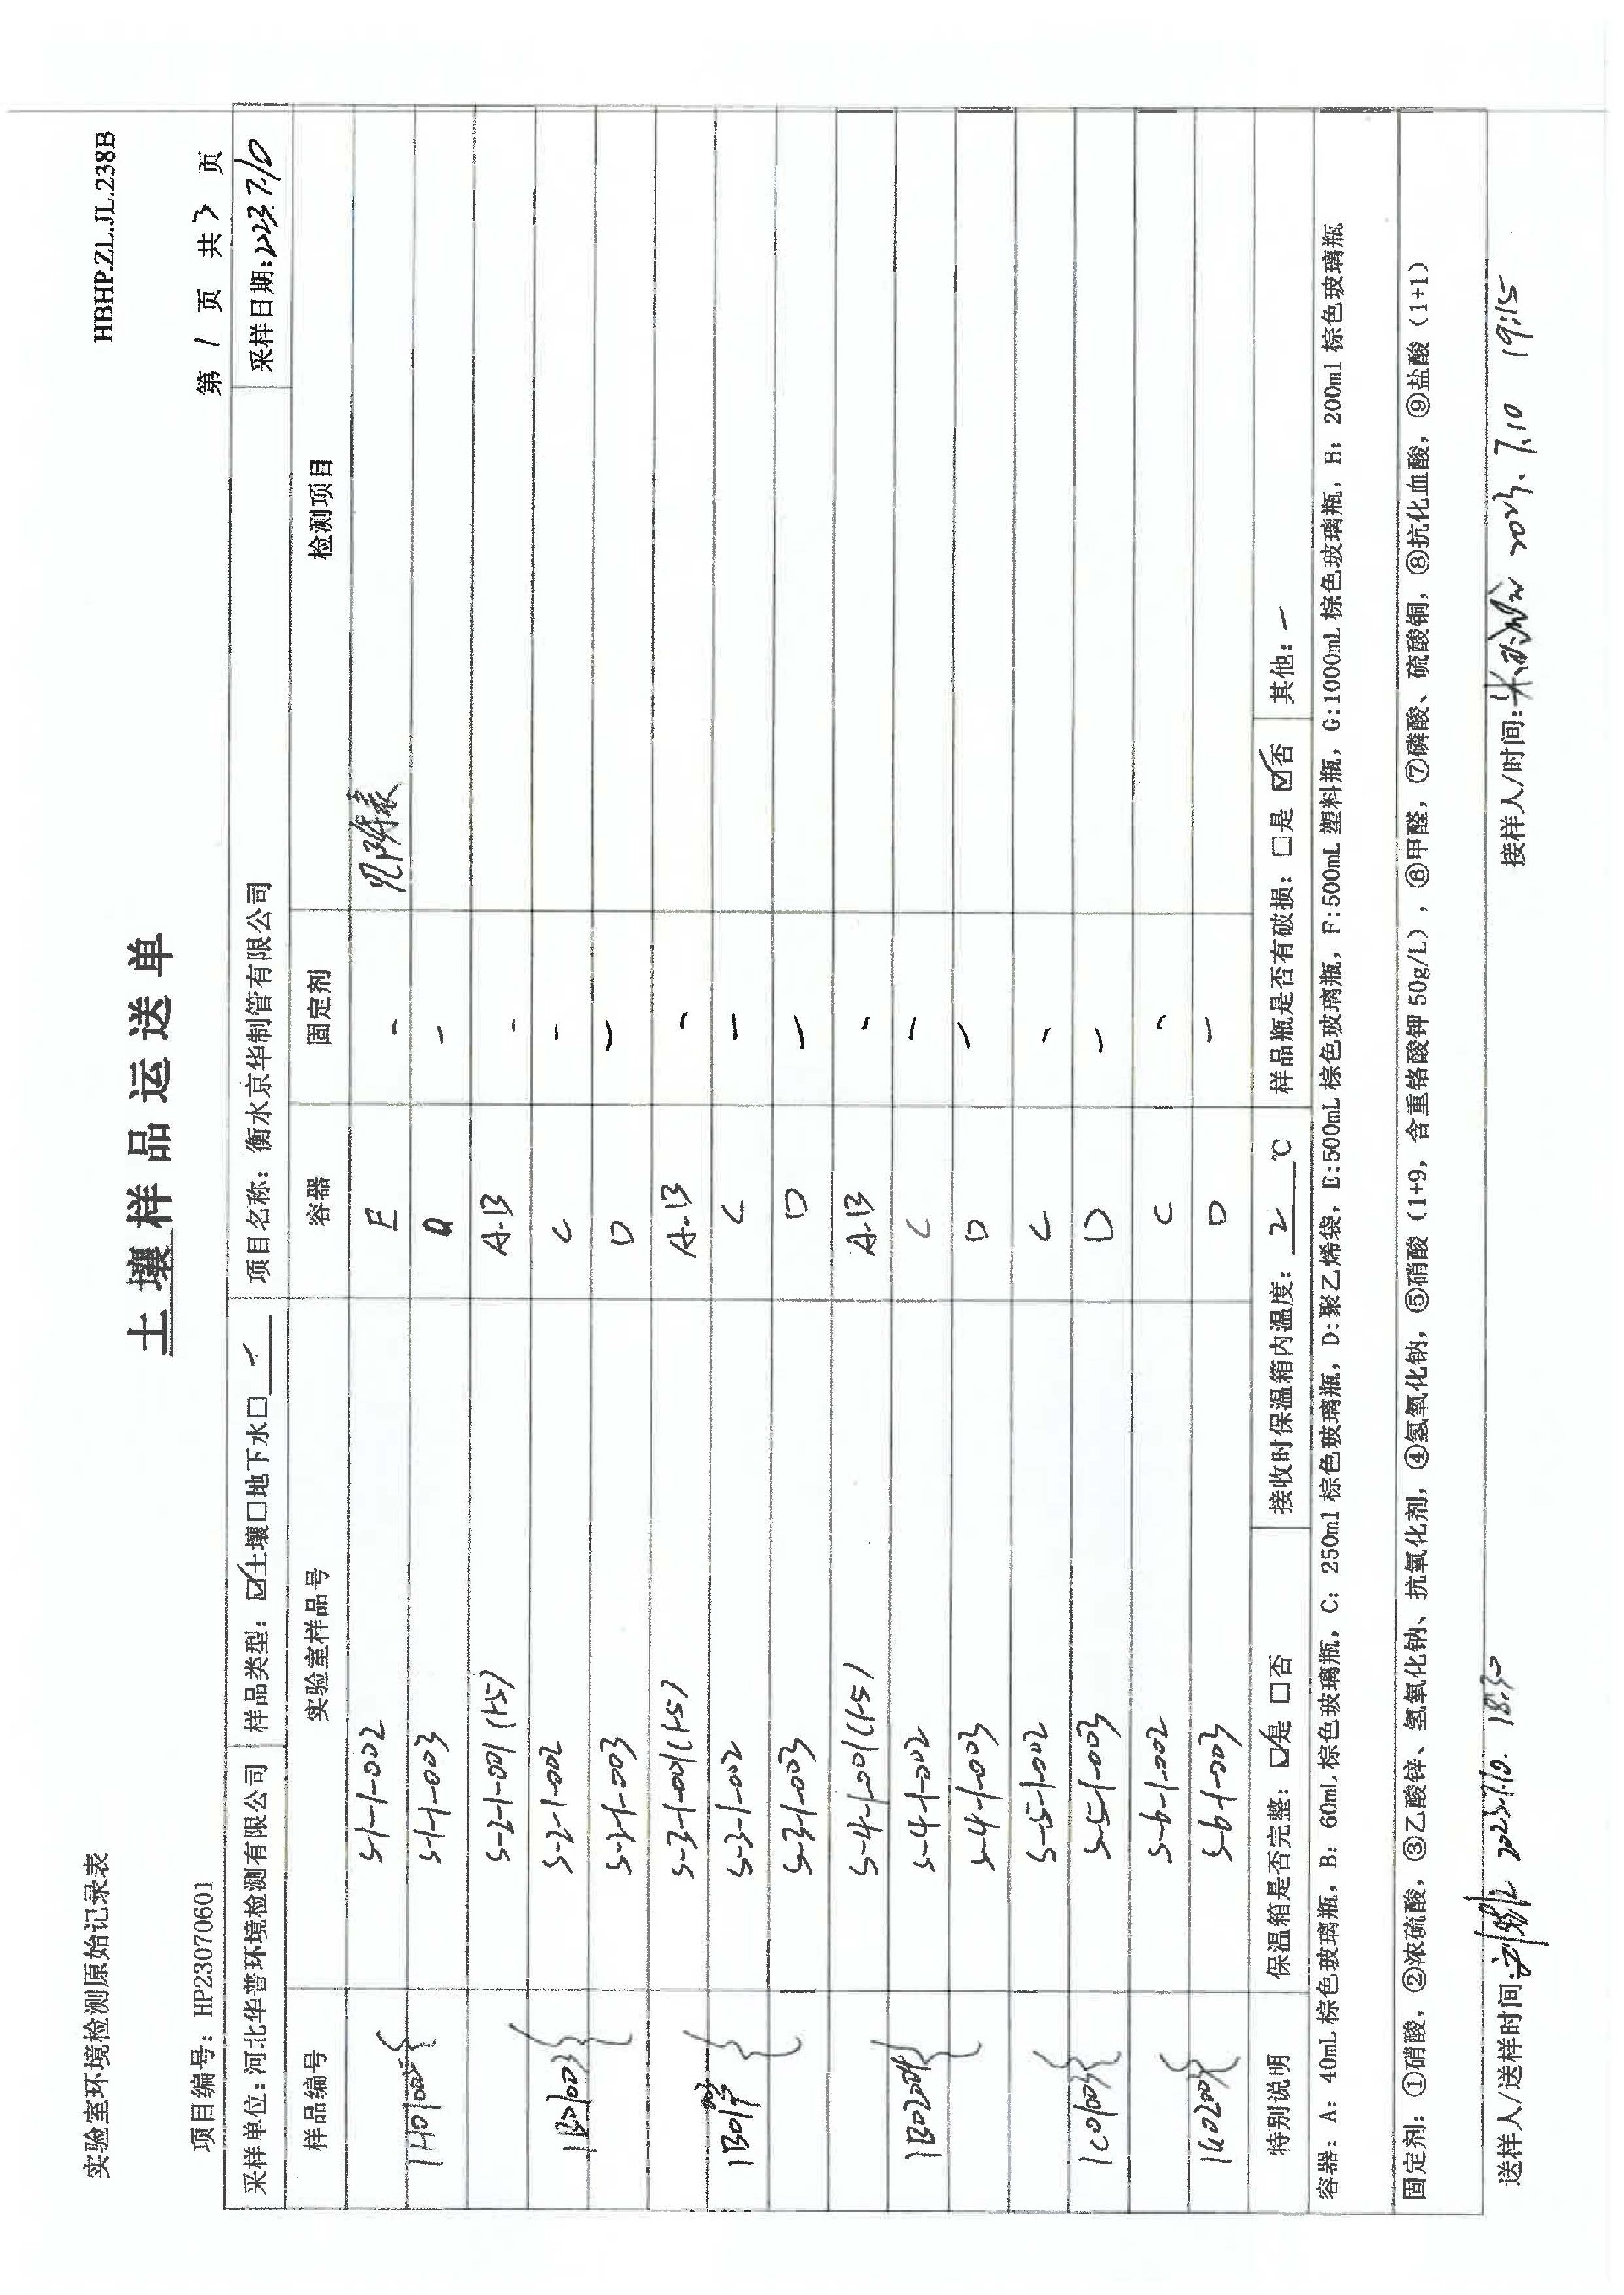 实验室环境检测原始记录表
HBHP.ZL.JL.238B
土壤样品运送单
项目编号：HP23070601
第 1 页 共 3 页
采样单位：河北华普环境检测有限公司 样品类型：☑土壤□地下水□ 项目名称：衡水京华制管有限公司 采样日期：2023.7.10
样品编号 实验室样品号 容器 固定剂 检测项目
S-1-1-002 E - 见附表
S-1-1-003 -
S-2-1-001(1-5) A.B -
S-2-1-002 C -
S-2-1-003 D -
S-3-1-001(1-5) A.B -
S-3-1-002 C -
S-3-1-003 D -
S-4-1-001(1-5) A.B -
1B02004 S-4-1-002 C -
S-4-1-003 D -
S-5-1-002 C -
S-5-1-003 D -
S-6-1-002 C -
S-6-1-003 D -
特别说明 保温箱是否完整：☑是 □否 接收时保温箱内温度：2 ℃ 样品瓶是否有破损：□是 ☑否 其他：-
容器：A：40mL 棕色玻璃瓶，B：60mL 棕色玻璃瓶，C：250ml 棕色玻璃瓶，D:聚乙烯袋，E:500mL 棕色玻璃瓶，F:500mL 塑料瓶，G:1000mL 棕色玻璃瓶，H：200ml 棕色玻璃瓶
固定剂：①硝酸，②浓硫酸，③乙酸锌、氢氧化钠、抗氧化剂，④氢氧化钠，⑤硝酸（1+9，含重铬酸钾 50g/L），⑥甲醛，⑦磷酸、硫酸铜，⑧抗化血酸，⑨盐酸（1+1）
送样人/送样时间： 2023.7.10. 18:30 接样人/时间： 2023.7.10 19:15